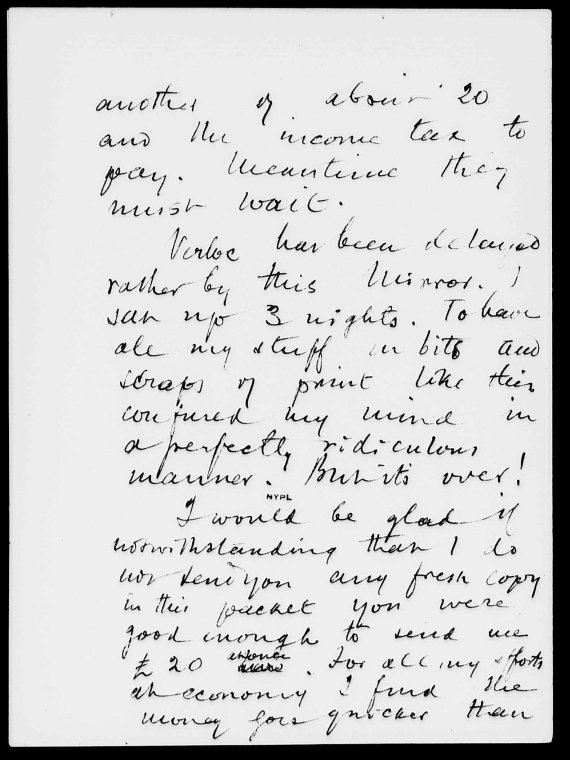 another of about 20
and the income tax to
pay. Meantime they
must wait.
Verloc has been delayed
rather by this Mirror. I
sat up 3 nights. To have
all my stuff in bits and
scraps of print like this
confused my mind in
a perfectly ridiculous
manner. But it's over!
NYPL
I would be glad if
notwithstanding that I do
not send you any fresh copy
in this packet you were
good enough to send me
£20 at once. For all my efforts
at economy I find the
money goes quicker than